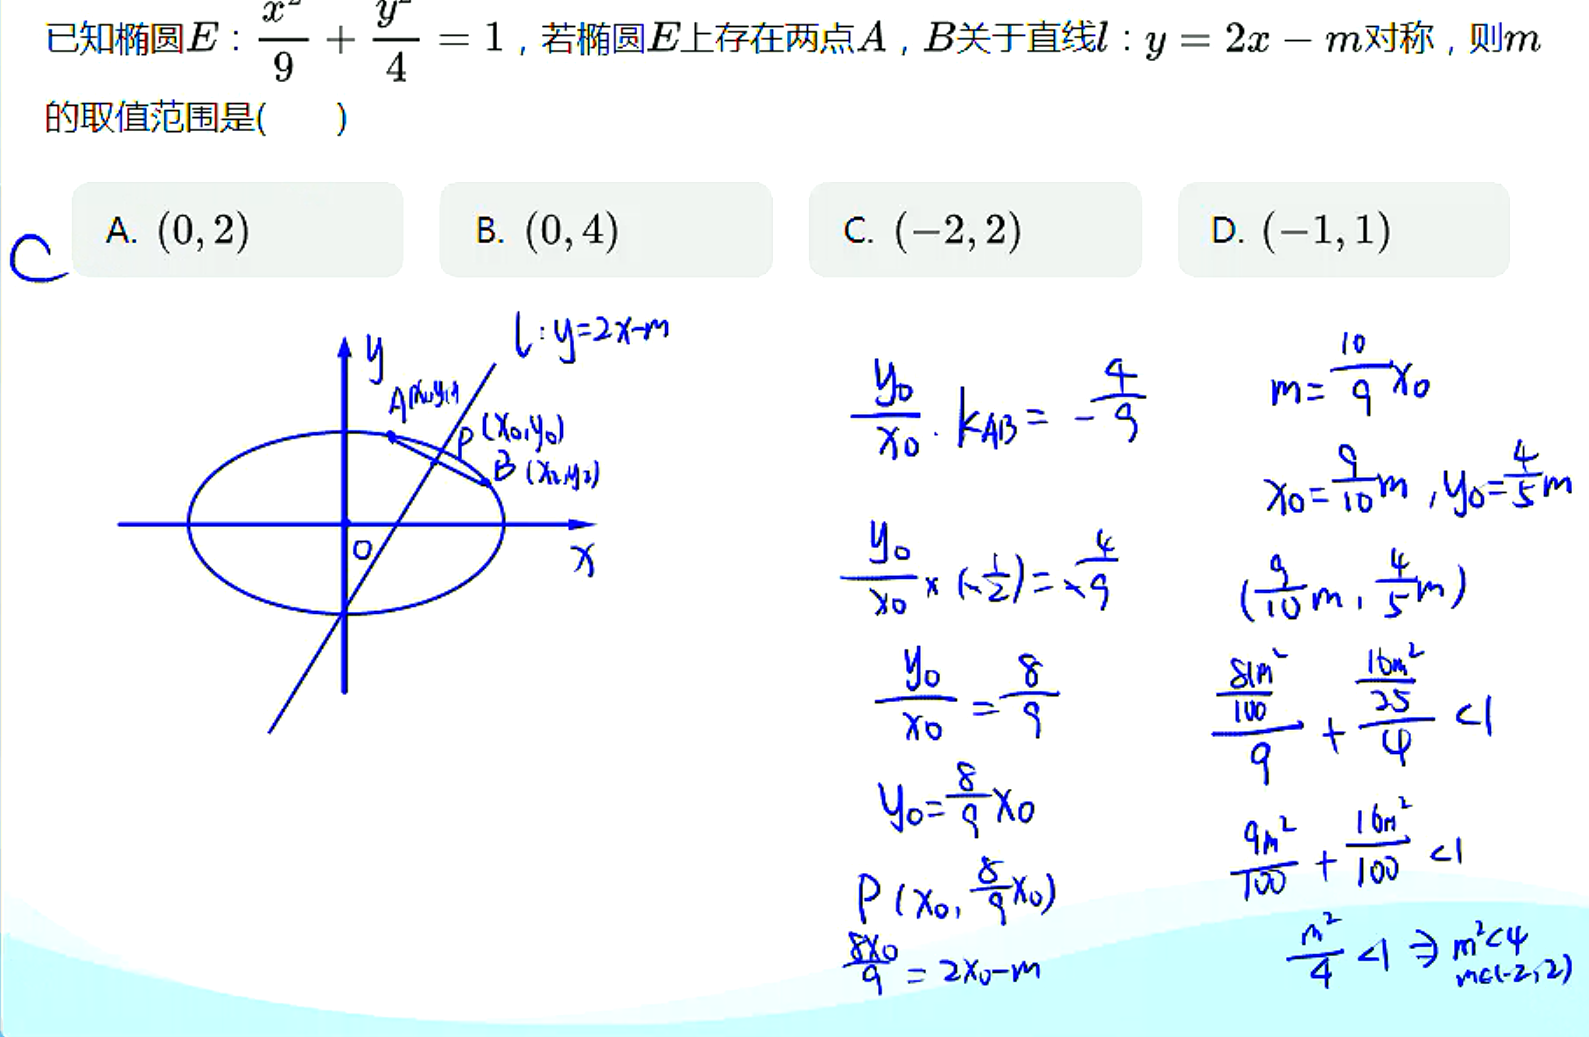 已知椭圆E：x²/9 + y²/4 = 1，若椭圆E上存在两点A，B关于直线l：y = 2x − m对称，则m
的取值范围是(　　)
A. (0, 2)
B. (0, 4)
C. (−2, 2)
D. (−1, 1)
C
l：y=2x-m
y
A(x₁,y₁)
P(x₀,y₀)
B(x₂,y₂)
O
x
y₀/x₀ · k_AB = -4/9
y₀/x₀ × (-1/2) = -4/9
y₀/x₀ = 8/9
y₀ = 8/9 x₀
P(x₀, 8/9 x₀)
8x₀/9 = 2x₀-m
m = 10/9 x₀
x₀ = 9/10 m, y₀ = 4/5 m
(9/10 m, 4/5 m)
(81m²/100)/9 + (16m²/25)/4 <1
9m²/100 + 16m²/100 <1
m²/4 <1 ⇒ m²<4
m∈(-2,2)